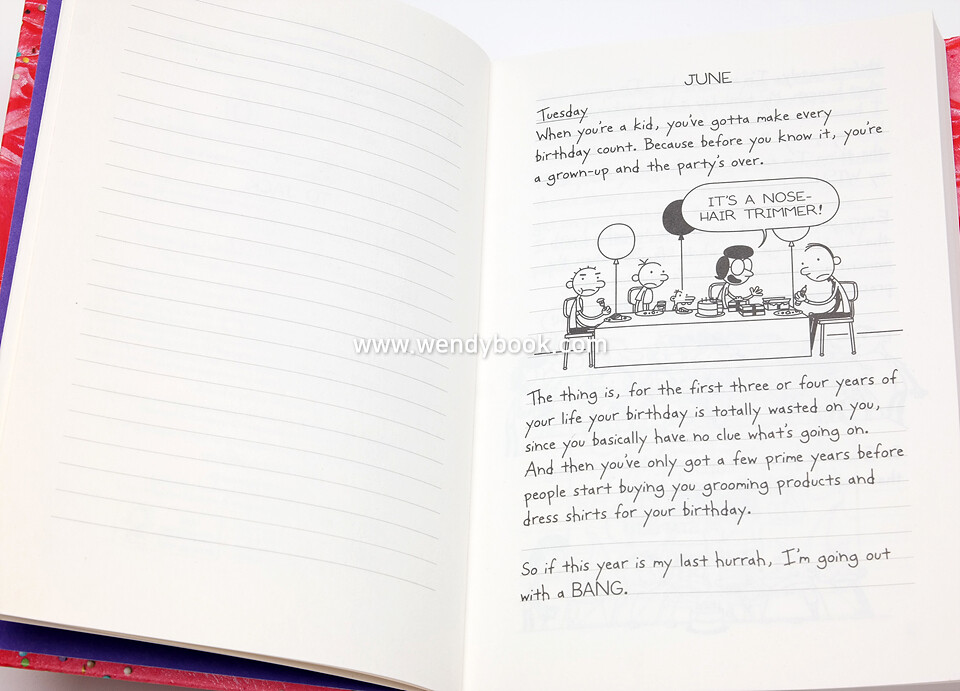 JUNE
Tuesday
When you're a kid, you've gotta make every
birthday count. Because before you know it, you're
a grown-up and the party's over.
IT'S A NOSE-
HAIR TRIMMER!
www.wendybook.com
The thing is, for the first three or four years of
your life your birthday is totally wasted on you,
since you basically have no clue what's going on.
And then you've only got a few prime years before
people start buying you grooming products and
dress shirts for your birthday.
So if this year is my last hurrah, I'm going out
with a BANG.